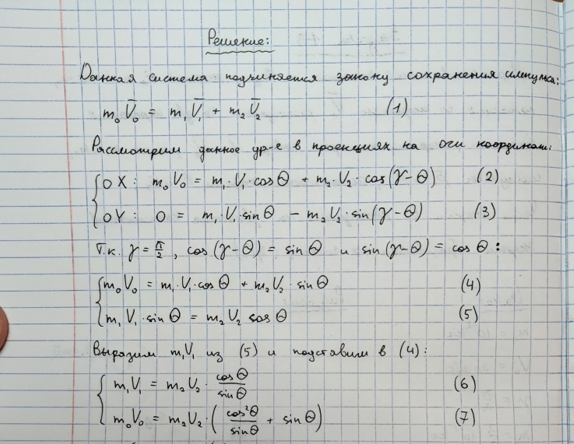 Решение:
Данная система подчиняется закону сохранения импульса:
m₀V̅₀ = m₁V̅₁ + m₂V̅₂ (1)
Рассмотрим данное ур-е в проекциях на оси координат:
{OX: m₀V₀ = m₁·V₁·cosΘ + m₂·V₂·cos(γ-Θ) (2)
OY: 0 = m₁·V₁·sinΘ - m₂V₂·sin(γ-Θ) (3)
Т.к. γ = π/2, cos(γ-Θ) = sinΘ и sin(γ-Θ) = cosΘ:
{m₀V₀ = m₁·V₁·cosΘ + m₂V₂·sinΘ (4)
m₁V₁·sinΘ = m₂V₂ cosΘ (5)
Выразим m₁V₁ из (5) и подставим в (4):
{m₁V₁ = m₂V₂·cosΘ/sinΘ (6)
m₀V₀ = m₂V₂·(cos²Θ/sinΘ + sinΘ) (7)